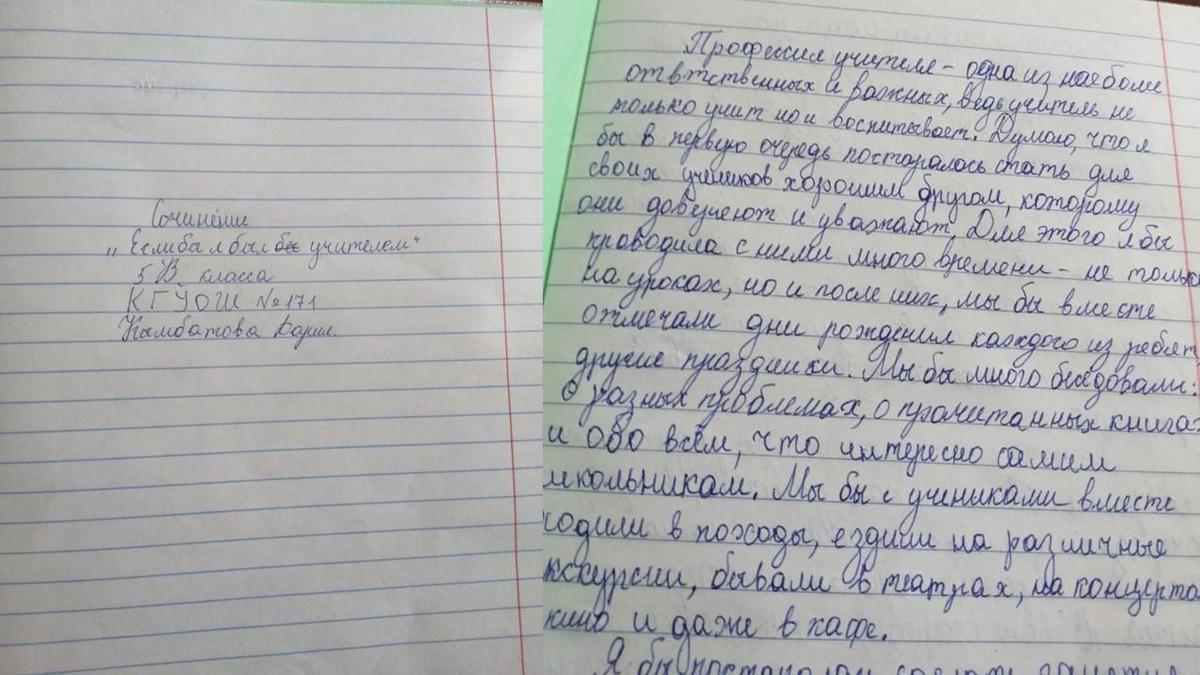 Сочинение
„Если ба я был бы учителем"
5 "В" класса
КГУОШ №171
Кымбатова Дария
Профессия учителя - одна из наеболи
отвтственных и важных, ведь учитель не
только учит но и воспитывает. Думаю, что я
бы в первую очередь посторалось стать для
своих учеников хорошим другом, которому
они доверяют и уважают. Для этого я бы
проводила с ними много времени - не только
на уроках, но и после них, мы бы вместе
отмечали дни рождения каждого из ребят
другие праздники. Мы бы много беседовали:
О разных проблемах, о прочитанных книга
и обо всём, что интересно самим
школьникам. Мы бы с учениками вместе
ходили в походы, ездили на различные
экскурсии, бывали в театрах, на концерта
кино и даже в кафе.
Я бы